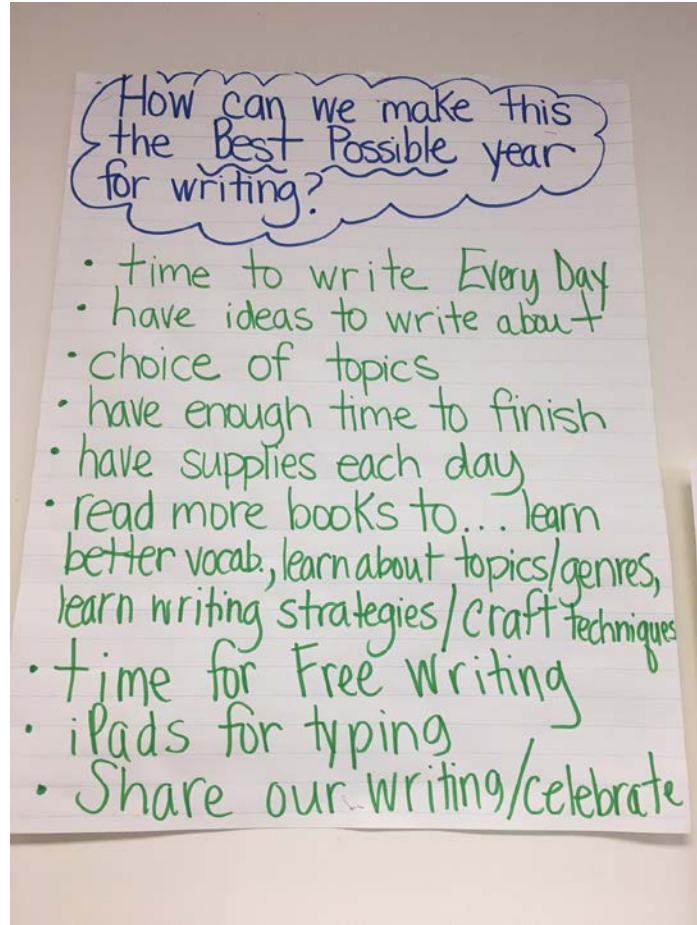 How can we make this
the Best Possible year
for writing?
• time to write Every Day
• have ideas to write about
• choice of topics
• have enough time to finish
• have supplies each day
• read more books to... learn
better vocab., learn about topics/genres,
learn writing strategies/craft techniques
• time for Free Writing
• iPads for typing
• Share our writing/celebrate